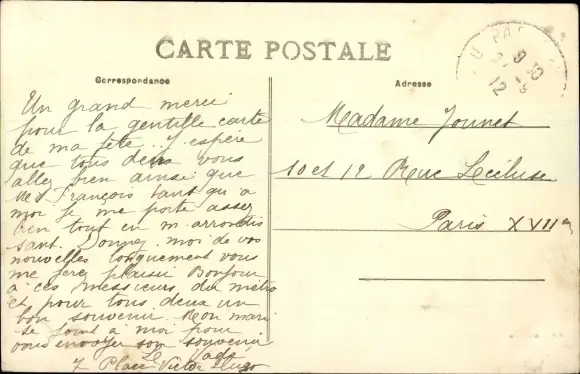 CARTE POSTALE
Correspondance
Adresse
Un grand merci
pour la gentille carte
de ma fête. J'espère
que tous deux vous
allez bien ainsi que
Mr François tant qu'à
moi je me porte assez
bien tout en m'arrondis
sant. Donnez-moi de vos
nouvelles longuement vous
me ferez plaisir Bonjour
à ces messieurs du métro
et pour tous deux un
bon souvenir. Mon mari
se joint à moi pour
vous envoyer son souvenir
7 Place Victor Hugo
Madame Jounet
10 et 12 Rue Lécluse
Paris XVIIe
9 30
12